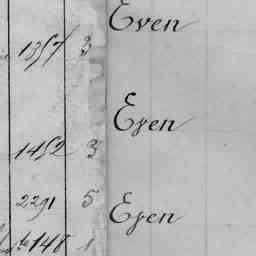 Even
1357 3
Even
1452 3
2291 5
Even
148 1